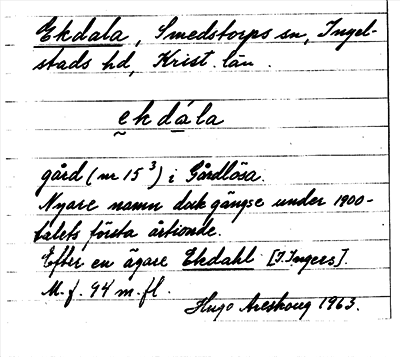 Ekdala, Smedstorps sn, Ingel-
stads hd, Krist. län.
ekdála
gård (nr 15³) i Gårdlösa.
Nyare namn dock gängse under 1900-
talets första årtionde.
Efter en ägare Ekdahl [I. Ingers].
M. f. 94 m. fl.
Hugo Areskoug 1963.